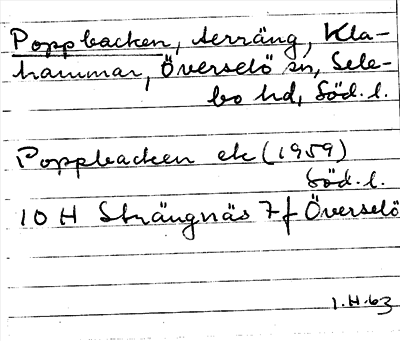 Poppbacken, terräng, Kla-
hammar, Överselö sn, Sele-
bo hd, Söd. l.
Poppbacken ek (1959)
Söd. l.
10 H Strängnäs 7 f Överselö
1.H.63